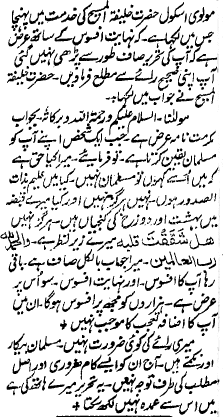 مولوی اسکول حضرت خلیفۃ المسیح کی خدمت میں پہنچا
جس میں لکھا ہے۔ کہ نہایت افسوس کے ساتھ عرض
ہے کہ آپ کی تحریر صاف طور سے پڑھی نہیں گئی
آپ اپنی صحیح رائے سے مطلع فرماویں۔ حضرت خلیفۃ
المسیح نے جواب میں لکھا ہے۔
مولٰنا۔ السلام علیکم ورحمۃ اللہ وبرکاتہ۔ بجواب
کرمت نامہ عرض ہے۔ جب ایک شخص اپنے آپ کو
مسلمان یقین کرتا ہے۔ تو فرمائیے۔ میرا کیا حق ہے
کہ میں اسے کہوں تو مسلمان نہیں۔ کیا میں علیم بذات
الصدور ہوں۔ نہیں ہرگز نہیں اور کیا میرے قبضہ
میں بہشت اور دوزخ کی کنجیاں ہیں۔ ہرگز نہیں
ھل شققت قلبہ میرے زیر نظر ہے۔ والحمد للہ
رب العالمین۔ میرا جواب بالکل صاف ہے۔ باقی
رہا آپ کا افسوس۔ اور نہایت افسوس۔ سو اس پر
عرض ہے۔ ہزاروں کو مجھ پر افسوس ہوگا۔ ان میں
آپ کا اضافہ تعجب کا موجب نہیں ۔
میری رائے کی کوئی ضرورت نہیں۔ مسلمان بیکار
اور نکمے ہیں۔ آج ان کو ایسے کام ضروری اور اصل
مطلب کی طرف توجہ نہیں۔ یہ تحریر میرے ہاتھ کی ہے
میں اس سے عمدہ نہیں لکھ سکتا ۔